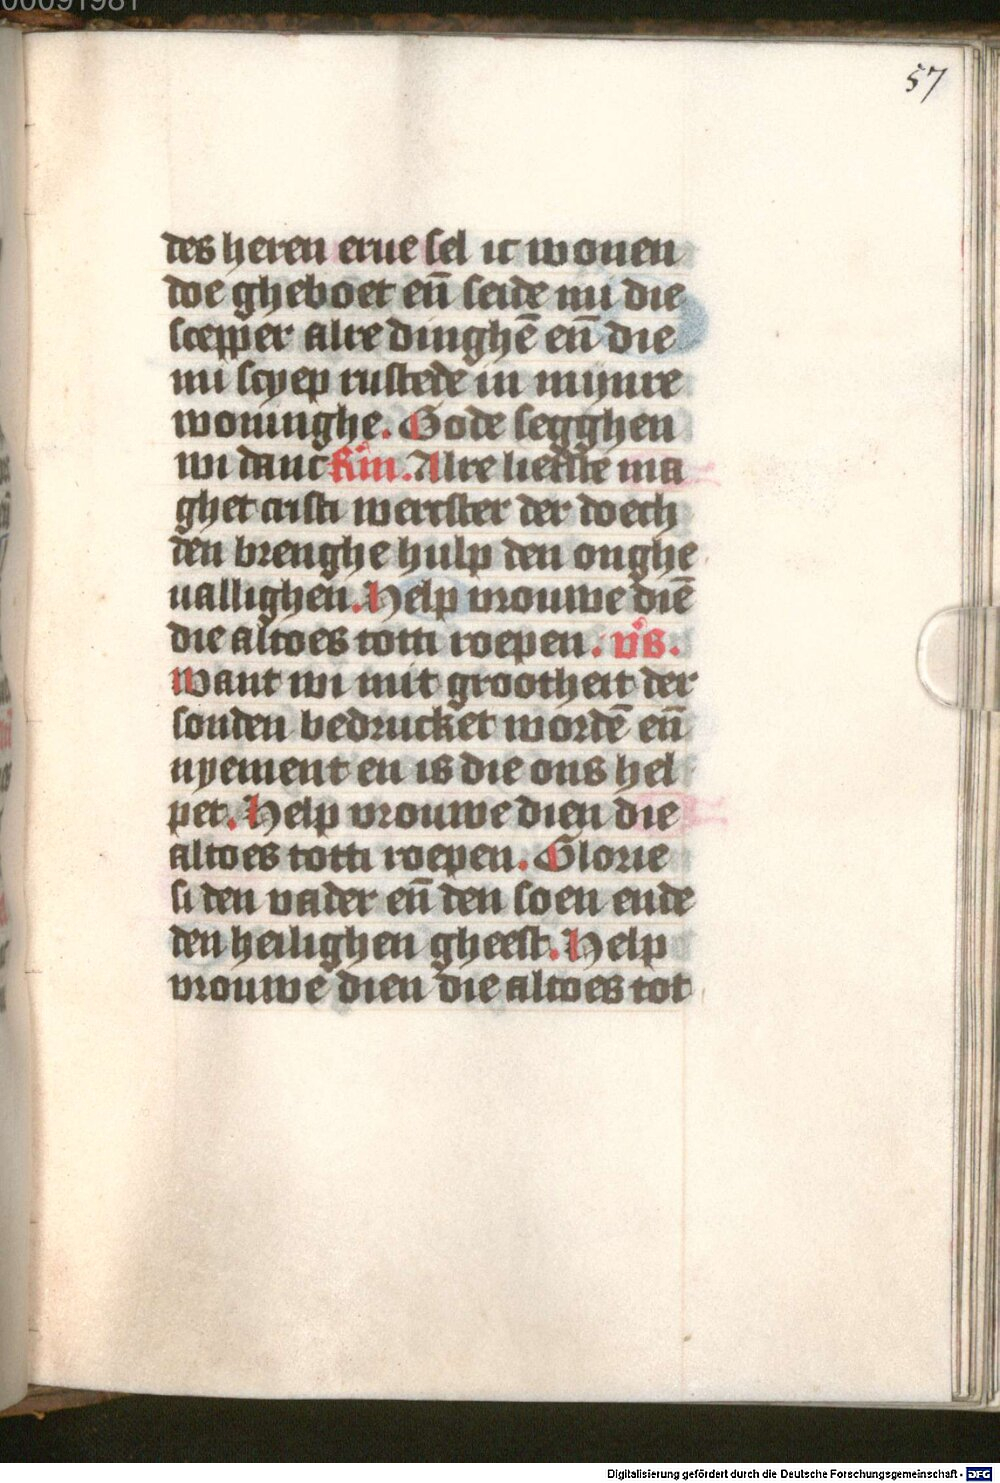 57
des heren erue sel ic wonen
doe gheboet en̄ seide mi die
scepper alre dinghē en̄ die
mi sciep rustede in mijnre
woninghe. Gode segghen
wi danc R̄m. Alre liefste ma
ghet cristi wercster der doech
den brenghe hulp den onghe
uallighen. Help vrouwe diē
die altoes totti roepen. vs.
Want wi mit grootheit der
sonden bedrucket wordē en̄
nyement en is die ons hel
pet. Help vrouwe dien die
altoes totti roepen. Glorie
si den vader en̄ den soen ende
den heilighen gheest. Help
vrouwe dien die altoes tot
Digitalisierung gefördert durch die Deutsche Forschungsgemeinschaft - DFG